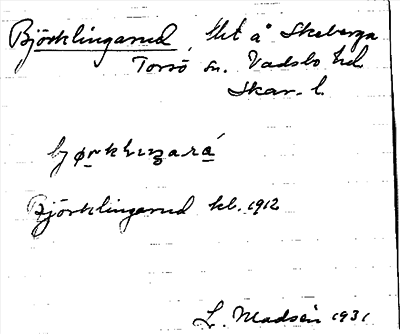 Björklingarud, lht å Skeberga
Torsö sn. Vadsbo hd
Skar. l.
Björklingarud kb. 1912
L. Madsén 1931